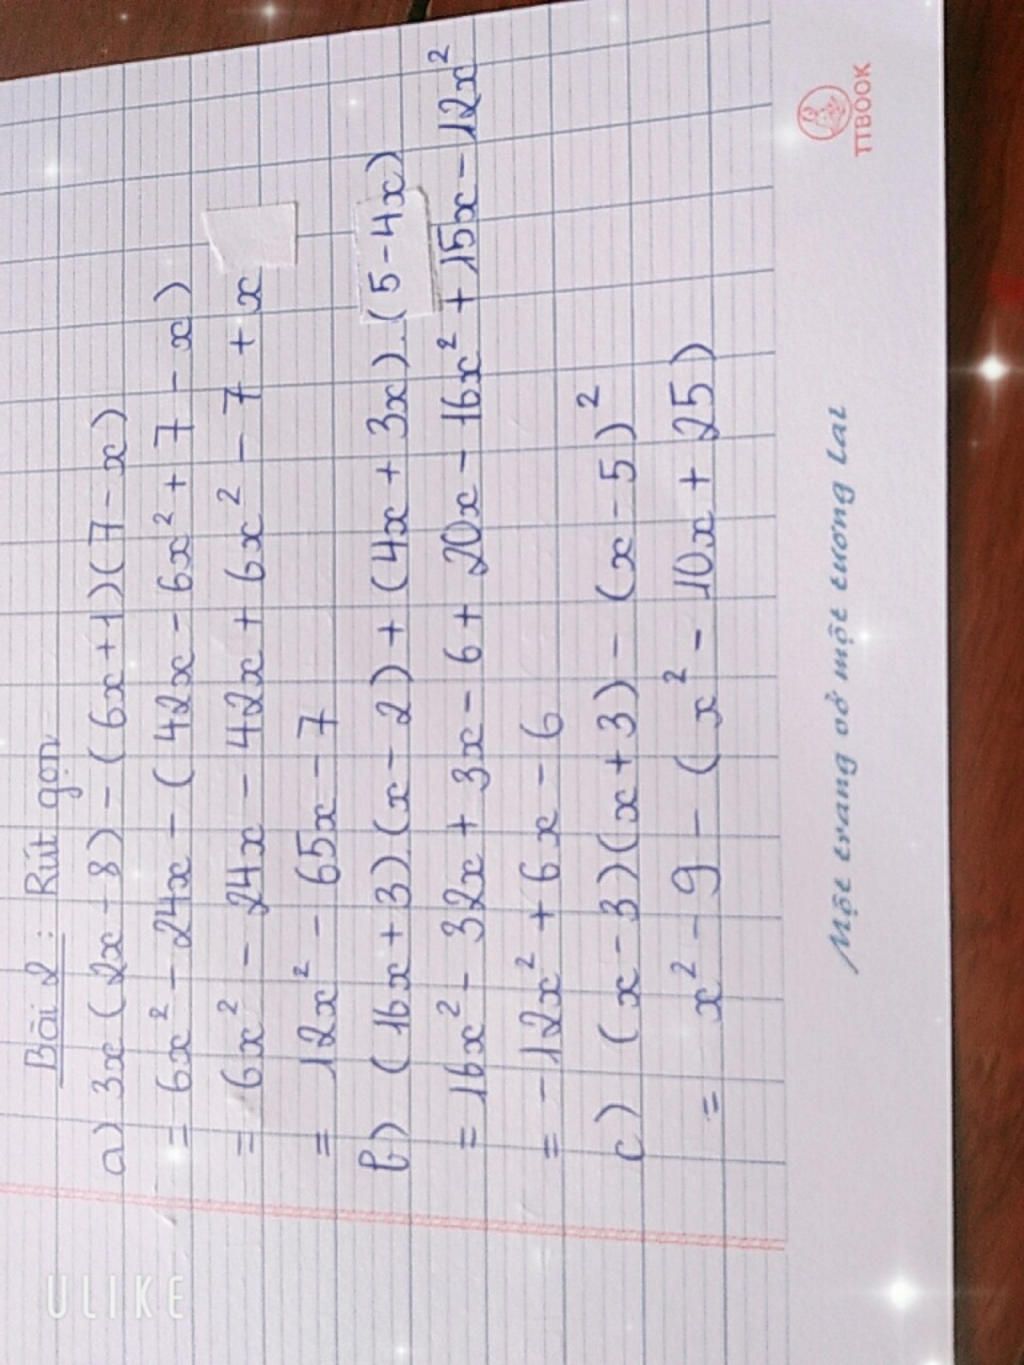 Bài 2 : Rút gọn
a) 3x (2x - 8) - (6x + 1) (7 - x)
= 6x² - 24x - ( 42x - 6x² + 7 - x)
= 6x² - 24x - 42x + 6x² - 7 + x
= 12x² - 65x - 7
b) (16x + 3).(x - 2) + (4x + 3x).(5 - 4x)
= 16x² - 32x + 3x - 6 + 20x - 16x² + 15x - 12x²
= -12x² + 6x - 6
c) (x - 3)(x + 3) - (x - 5)²
= x² - 9 - (x² - 10x + 25)
Một trang vở một tương lai
TTBOOK
ULIKE